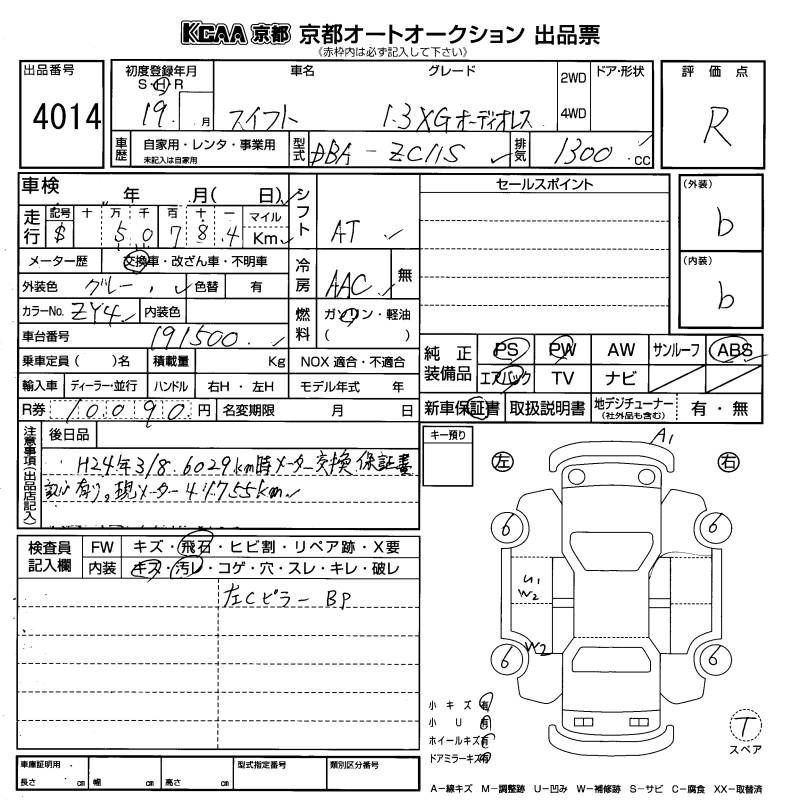 KCAA 京都 京都オートオークション 出品票
(赤枠内は必ず記入して下さい)
出品番号
4014
初度登録年月
S・H・R
19 月
車名
スイフト
グレード
1.3XGオーディオレス
2WD
4WD
ドア・形状
評価点
R
車歴
自家用・レンタ・事業用
未記入は自家用
型式
DBA-ZC11S
排気
1300 .cc
車検
年 月( 日)
走行
記号 十 万 千 百 十 一 マイル
$ 5 0 7 8 4 Km
シフト
AT
メーター歴
交換車・改ざん車・不明車
外装色
グレー
色替
有
冷房
AAC
無
カラーNo.
ZY4
内装色
燃料
ガソリン・軽油
( )
車台番号
191500
乗車定員( )名
積載量
Kg
NOX 適合・不適合
輸入車
ディーラー・並行
ハンドル
右H・左H
モデル年式 年
R券
10090 円
名変期限
月 日
セールスポイント
(外装)
b
(内装)
b
純正装備品
PS PW AW サンルーフ ABS
エアバック TV ナビ
新車保証書 取扱説明書 地デジチューナー
(社外品も含む)
有・無
注意事項(出品店記入)
後日品
H24年3/8.6029km時メーター交換保証書
記入有り。現メーター44755km
キー預り
左
右
A1
6
6
U1
W2
W2
6
6
検査員記入欄
FW
キズ・飛石・ヒビ割・リペア跡・X要
内装
キズ・汚レ・コゲ・穴・スレ・キレ・破レ
左Cピラー BP
小キズ 有
小U 有
ホイールキズ 有
ドアミラーキズ 有
T
スペア
車庫証明用
長さ cm 幅 cm 高さ cm
型式指定番号
類別区分番号
A−線キズ M−調整跡 U−凹み W−補修跡 S−サビ C−腐食 XX−取替済